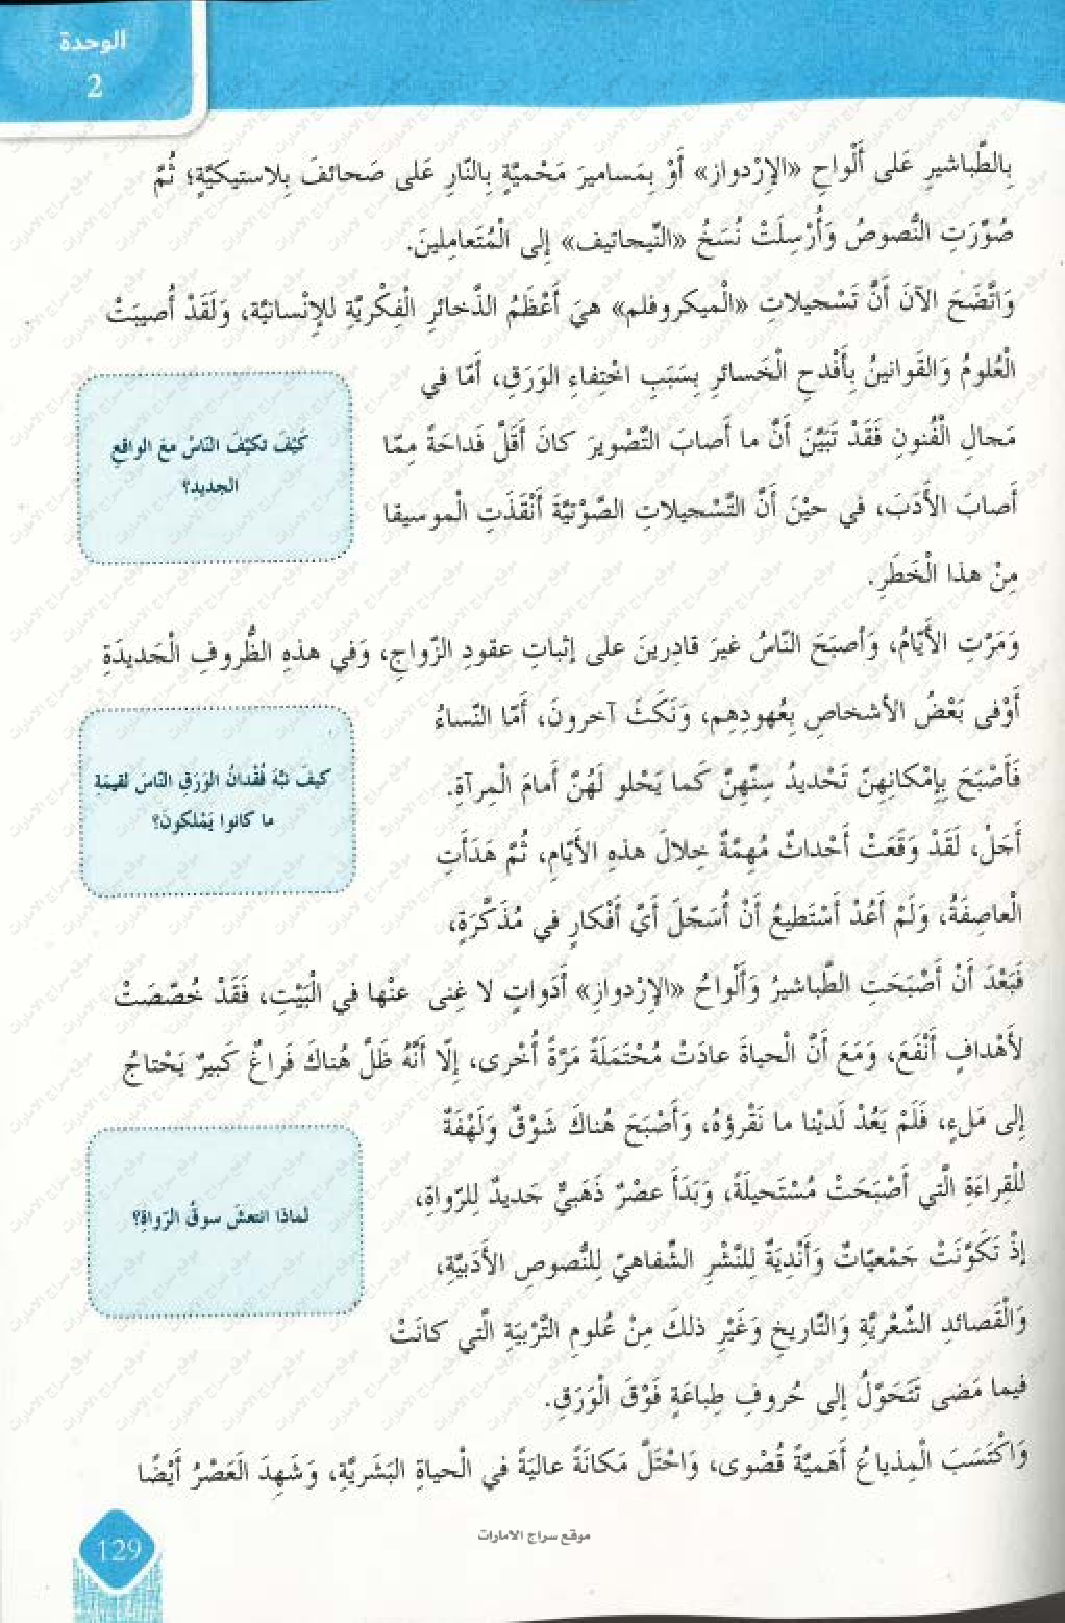 الوحدة
2
بِالطَّباشيرِ عَلى أَلْواحِ «الإِرْدوازِ» أَوْ بِمَساميرَ مَحْمِيَّةٍ بِالنّارِ عَلى صَحائفَ بِلاستيكيَّةٍ؛ ثُمَّ
صُوِّرَتِ النُّصوصُ وَأُرْسِلَتْ نُسَخُ «النّيجاتيف» إِلى الْمُتَعامِلينَ.
وَاتَّضَحَ الآنَ أَنَّ تَسْجيلاتِ «الْميكروفلم» هيَ أَعْظَمُ الذَّخائرِ الْفِكْرِيَّةِ للإِنْسانيَّة، وَلَقَدْ أُصيبَتْ
الْعُلومُ وَالقَوانينُ بِأَفْدحِ الْخَسائرِ بِسَبَبِ اخْتِفاءِ الوَرَقِ، أَمّا في
مَجالِ الْفُنونِ فَقَدْ تَبَيَّنَ أَنَّ ما أَصابَ التَّصْويرَ كانَ أَقَلَّ فَداحَةً مِمّا
أَصابَ الأَدَبَ، في حيْنَ أَنَّ التَّسْجيلاتِ الصَّوْتيَّةَ أَنْقَذَتِ الْموسيقا
مِنْ هذا الْخَطَرِ.
كَيْفَ تكيَّفَ النّاسُ معَ الواقعِ
الجديد؟
وَمَرَّتِ الأَيّامُ، وَأصبَحَ النّاسُ غيرَ قادِرينَ على إثباتِ عقودِ الزّواجِ، وَفي هذهِ الظُّروفِ الْجَديدَةِ
أَوْفى بَعْضُ الأشخاصِ بِعُهودِهِم، وَنَكَثَ آخرونَ، أَمّا النّساءُ
فَأَصْبَحَ بِإِمْكانِهِنَّ تَحْديدُ سِنِّهِنَّ كَما يَحْلو لَهُنَّ أَمامَ الْمِرآةِ.
أَجَلْ، لَقَدْ وَقَعَتْ أَحْداثٌ مُهِمَّةٌ خِلالَ هذهِ الأَيّامِ، ثُمَّ هَدَأَتِ
الْعاصِفَةُ، وَلَمْ أَعُدْ أَسْتَطيعُ أَنْ أُسَجِّلَ أَيَّ أَفْكارٍ في مُذَكَّرَةٍ،
كيفَ نبَّهَ فُقْدانُ الوَرَقِ النّاسَ لقيمَة
ما كانوا يَمْلكونَ؟
فَبَعْدَ أَنْ أَصْبَحَتِ الطَّباشيرُ وَأَلْواحُ «الإِرْدوازِ» أَدَواتٍ لا غِنى عنْها في الْبَيْتِ، فَقَدْ خُصِّصَتْ
لأَهْدافٍ أَنْفَعَ، وَمَعَ أَنَّ الْحياةَ عادَتْ مُحْتَمَلَةً مَرَّةً أُخْرى، إِلّا أَنَّهُ ظَلَّ هُناكَ فَراغٌ كَبيرٌ يَحْتاجُ
إِلى مَلءٍ، فَلَمْ يَعُدْ لَديْنا ما نَقْرؤهُ، وَأَصْبَحَ هُناكَ شَوْقٌ وَلَهْفَةٌ
لِلْقِراءَةِ الَّتي أَصْبَحَتْ مُسْتَحيلَةً، وَبَدَأَ عصْرٌ ذَهَبيٌّ جَديدٌ لِلرّواةِ،
إِذْ تَكَوَّنَتْ جَمْعيّاتٌ وَأَنْدِيَةٌ لِلنَّشْرِ الشَّفاهيِّ لِلنُّصوصِ الأَدَبيَّةِ،
وَالْقَصائدِ الشِّعْريَّةِ وَالتّاريخِ وَغَيْرِ ذلكَ مِنْ عُلومِ التَّرْبيَةِ الَّتي كانَتْ
فيما مَضى تَتَحَوَّلُ إِلى حُروفِ طِباعَةٍ فَوْقَ الْوَرَقِ.
لماذا انتعشَ سوقُ الرّواةِ؟
وَاكْتَسَبَ الْمِذياعُ أَهَميَّةً قُصْوى، وَاحْتَلَّ مَكانَةً عاليَةً في الْحياةِ البَشَريَّةِ، وَشَهِدَ العَصْرُ أَيْضًا
موقع سراج الامارات
129